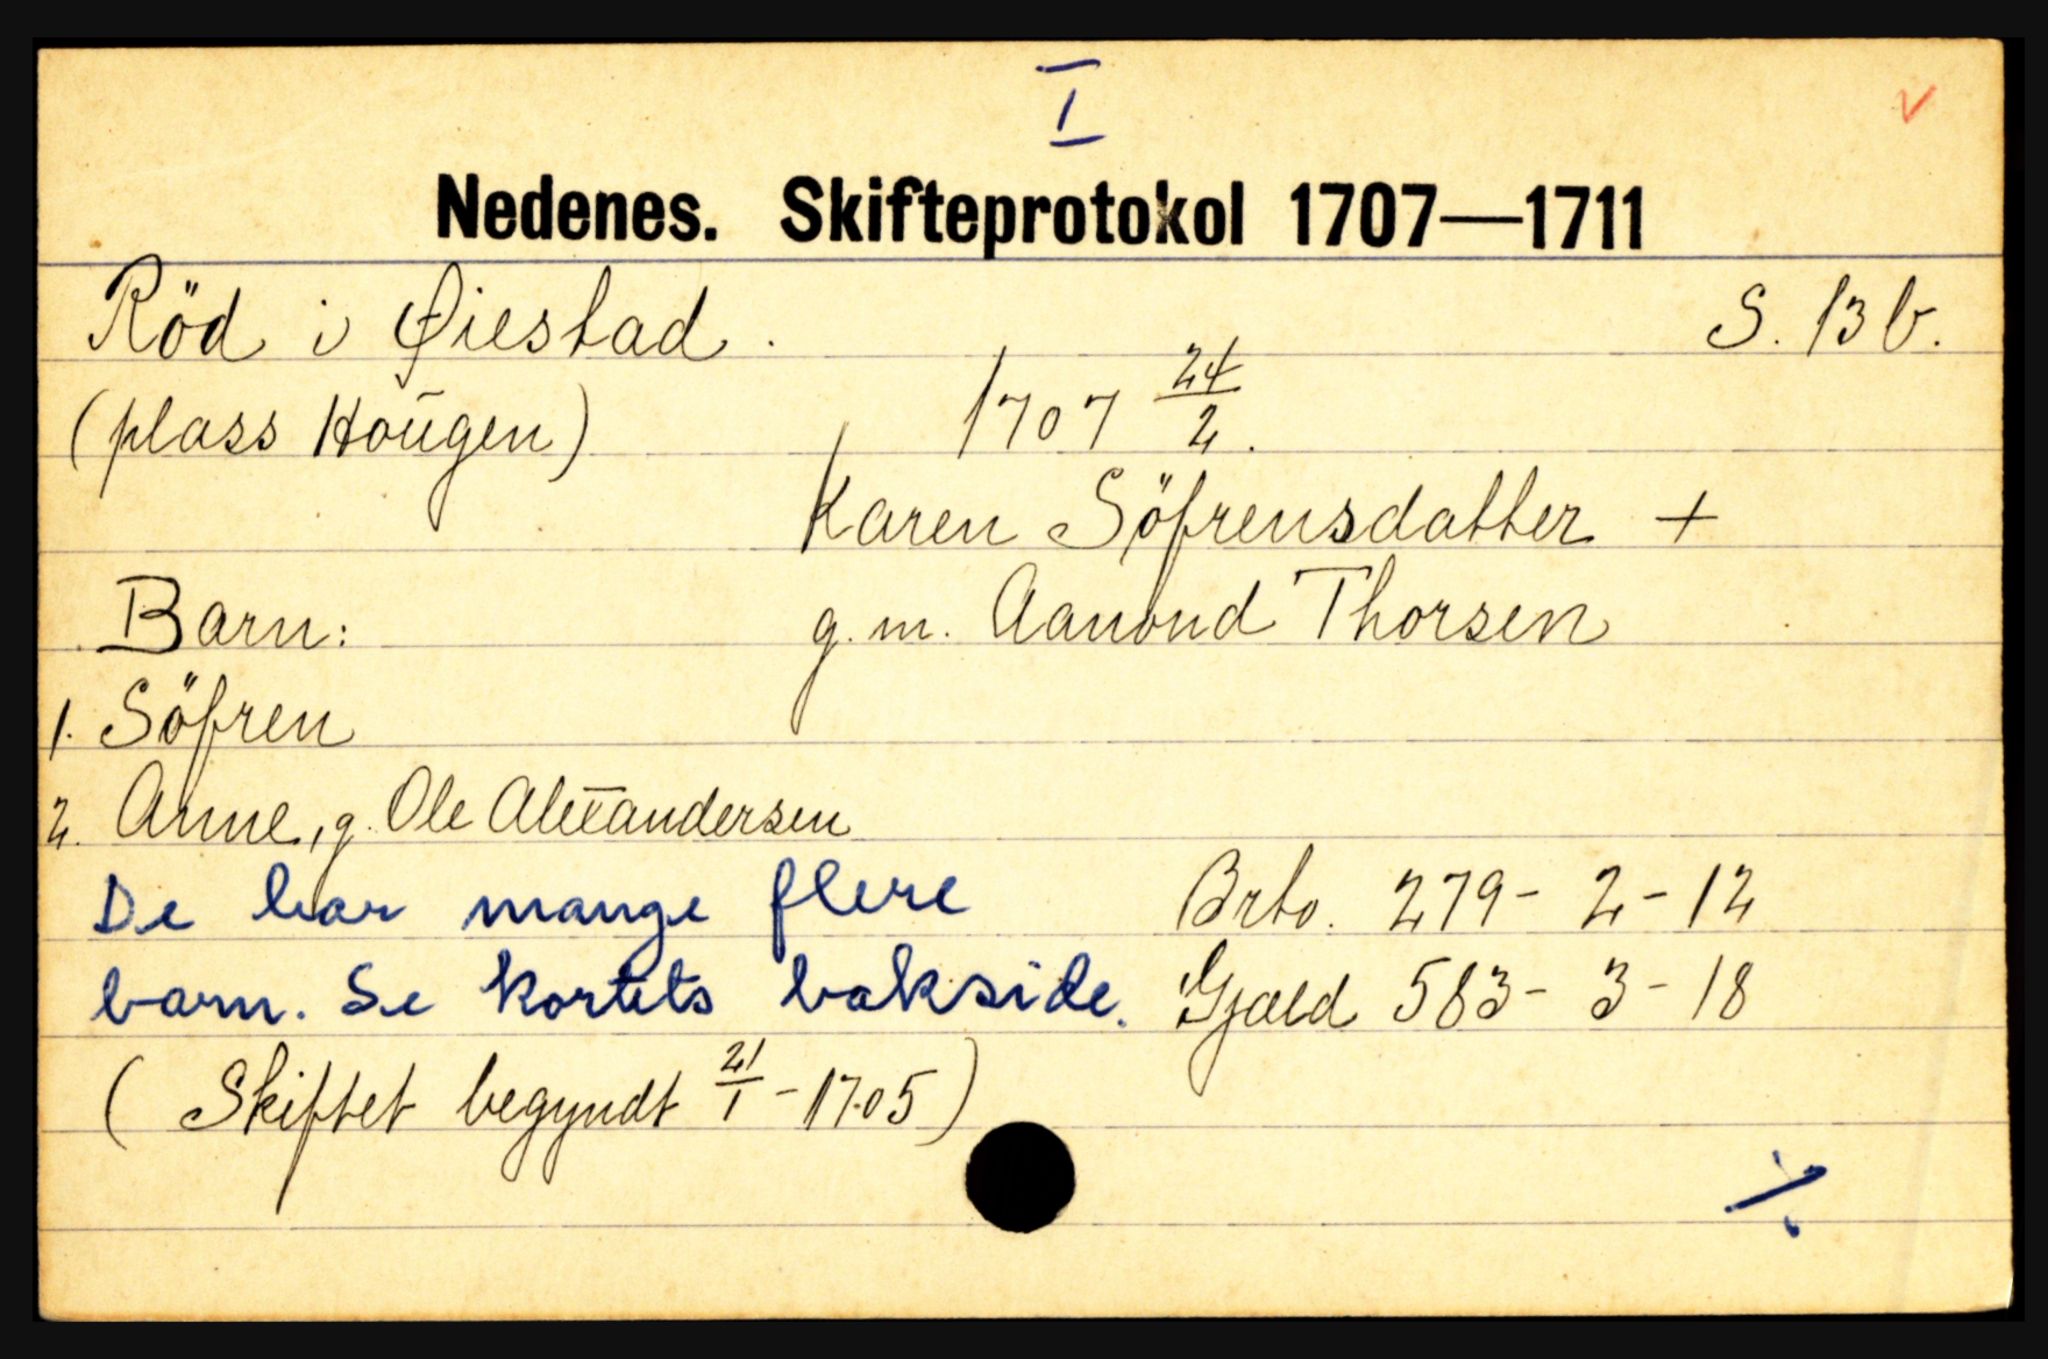 I
Nedenes. Skifteprotokol 1707—1711
Röd i Øiestad. S. 13 b.
(plass Hoūgen) 1707 24/2.
Karen Söfrensdatter +
Barn: g. m. Aanond Thorsen
1. Söfren
2. Anne, g. Ole Alexandersen
De har mange flere Brto. 279 - 2 - 12
barn. Se kortets bakside. Gjæld 583 - 3 - 18
( Skiftet begyndt 21/1 - 1705)